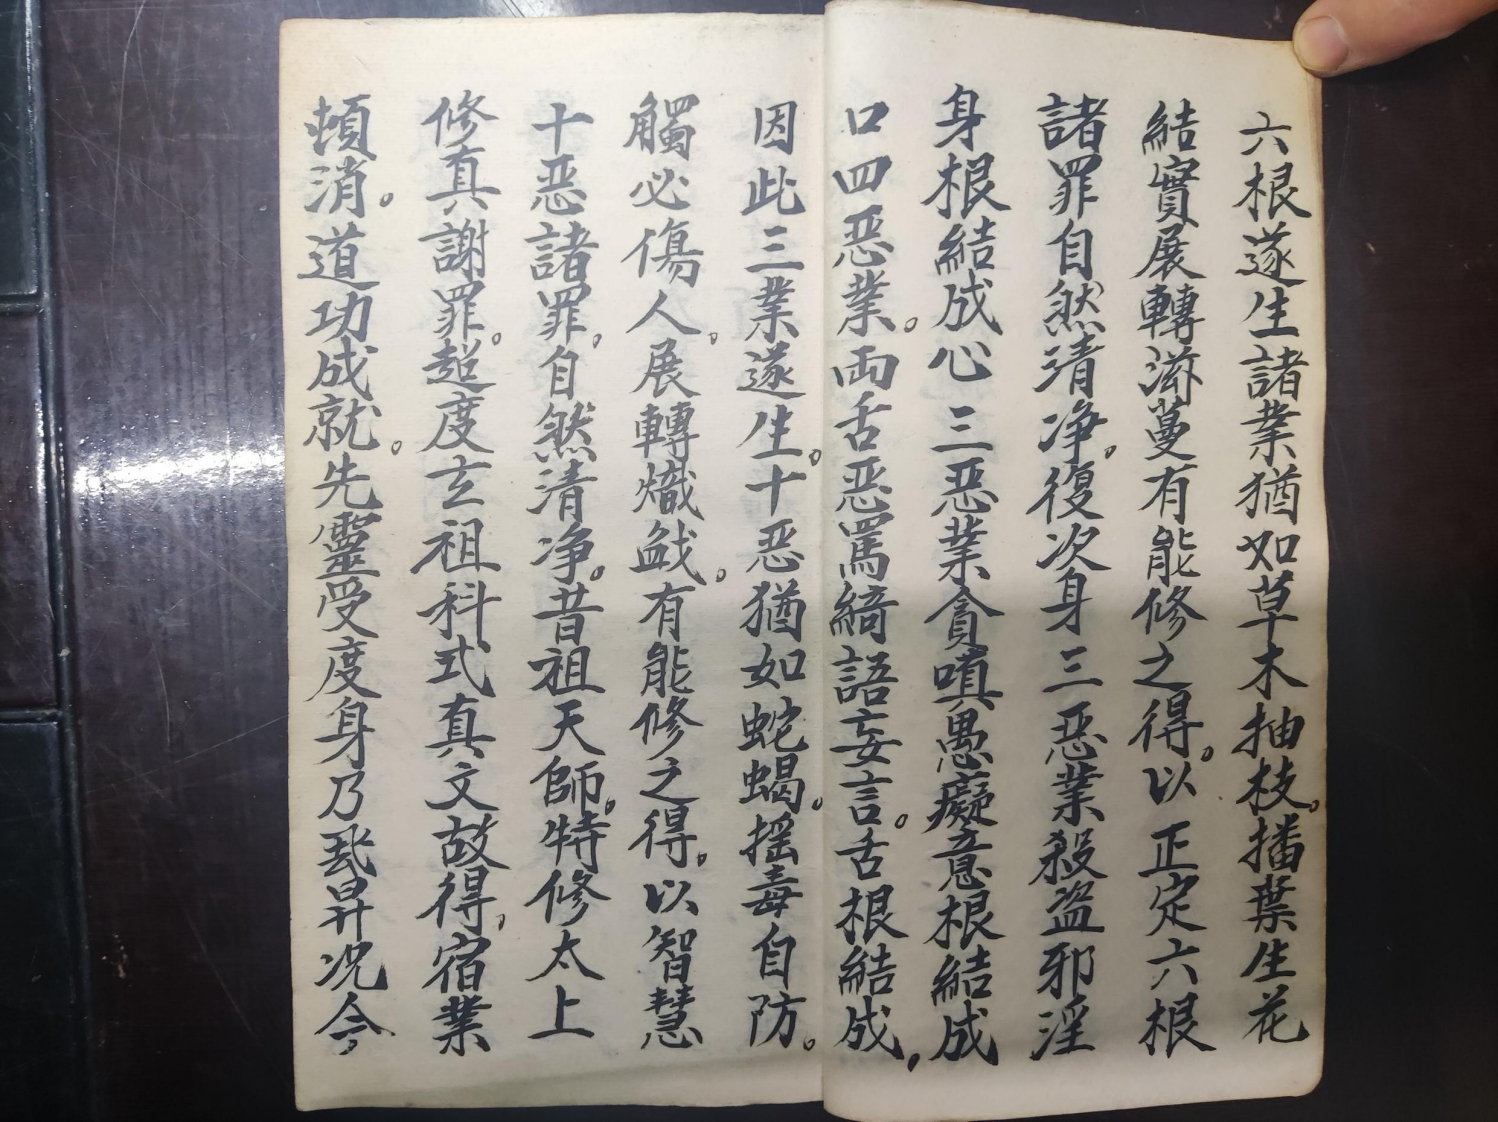 六根遂生諸業猶如草木抽枝。播葉生花
結實展轉滋蔓有能修之得。以正定六根
諸罪自然清净。復次身三惡業殺盜邪淫
身根結成心三惡業貪嗔愚癡意根結成
口四惡業。両舌惡罵綺語妄言。舌根結成。
因此三業遂生。十惡猶如蛇蝎。摇毒自防。
觸必傷人。展轉熾盛。有能修之得。以智慧
十惡諸罪。自然清净。昔祖天師。特修太上
修真謝罪。超度玄祖科式真文故得。宿業
頓消。道功成就。先靈受度身乃飛昇况今